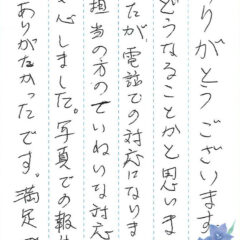 りがとうございます
どうなることかと思いま
たが電話での対応になりま
担当の方のていねいな対応
心しました。写真での報
ありがたかったです。満足